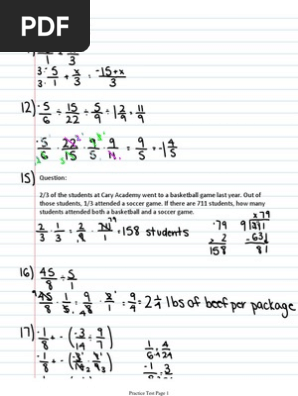 PDF
3· 5/1 + x/3 = -15+x/3
12) -5/6 ÷ 15/22 ÷ 5/9 ÷ 1 2/9 11/9
-5/6 · 22/15 · 9/5 · 9/11 = 9/5 = -1 4/5
15) Question:
2/3 of the students at Cary Academy went to a basketball game last year. Out of
those students, 1/3 attended a soccer game. If there are 711 students, how many
students attended both a basketball and a soccer game.
2/3 · 1/3 = 2/9 · 711/1 = 158 students
79
· 2
158
x79
9)711
-63↓
81
16) 45/8 ÷ 5/1
45/8 · 1/5 = 9/8 = 9/4 = 2 1/4 lbs of beef per package
17) -1/8 + - (-3/14 ÷ 9/7)
-1/8 + - (-3/14 · 7/9)
1/6 = 4/24
Practice Test Page 1